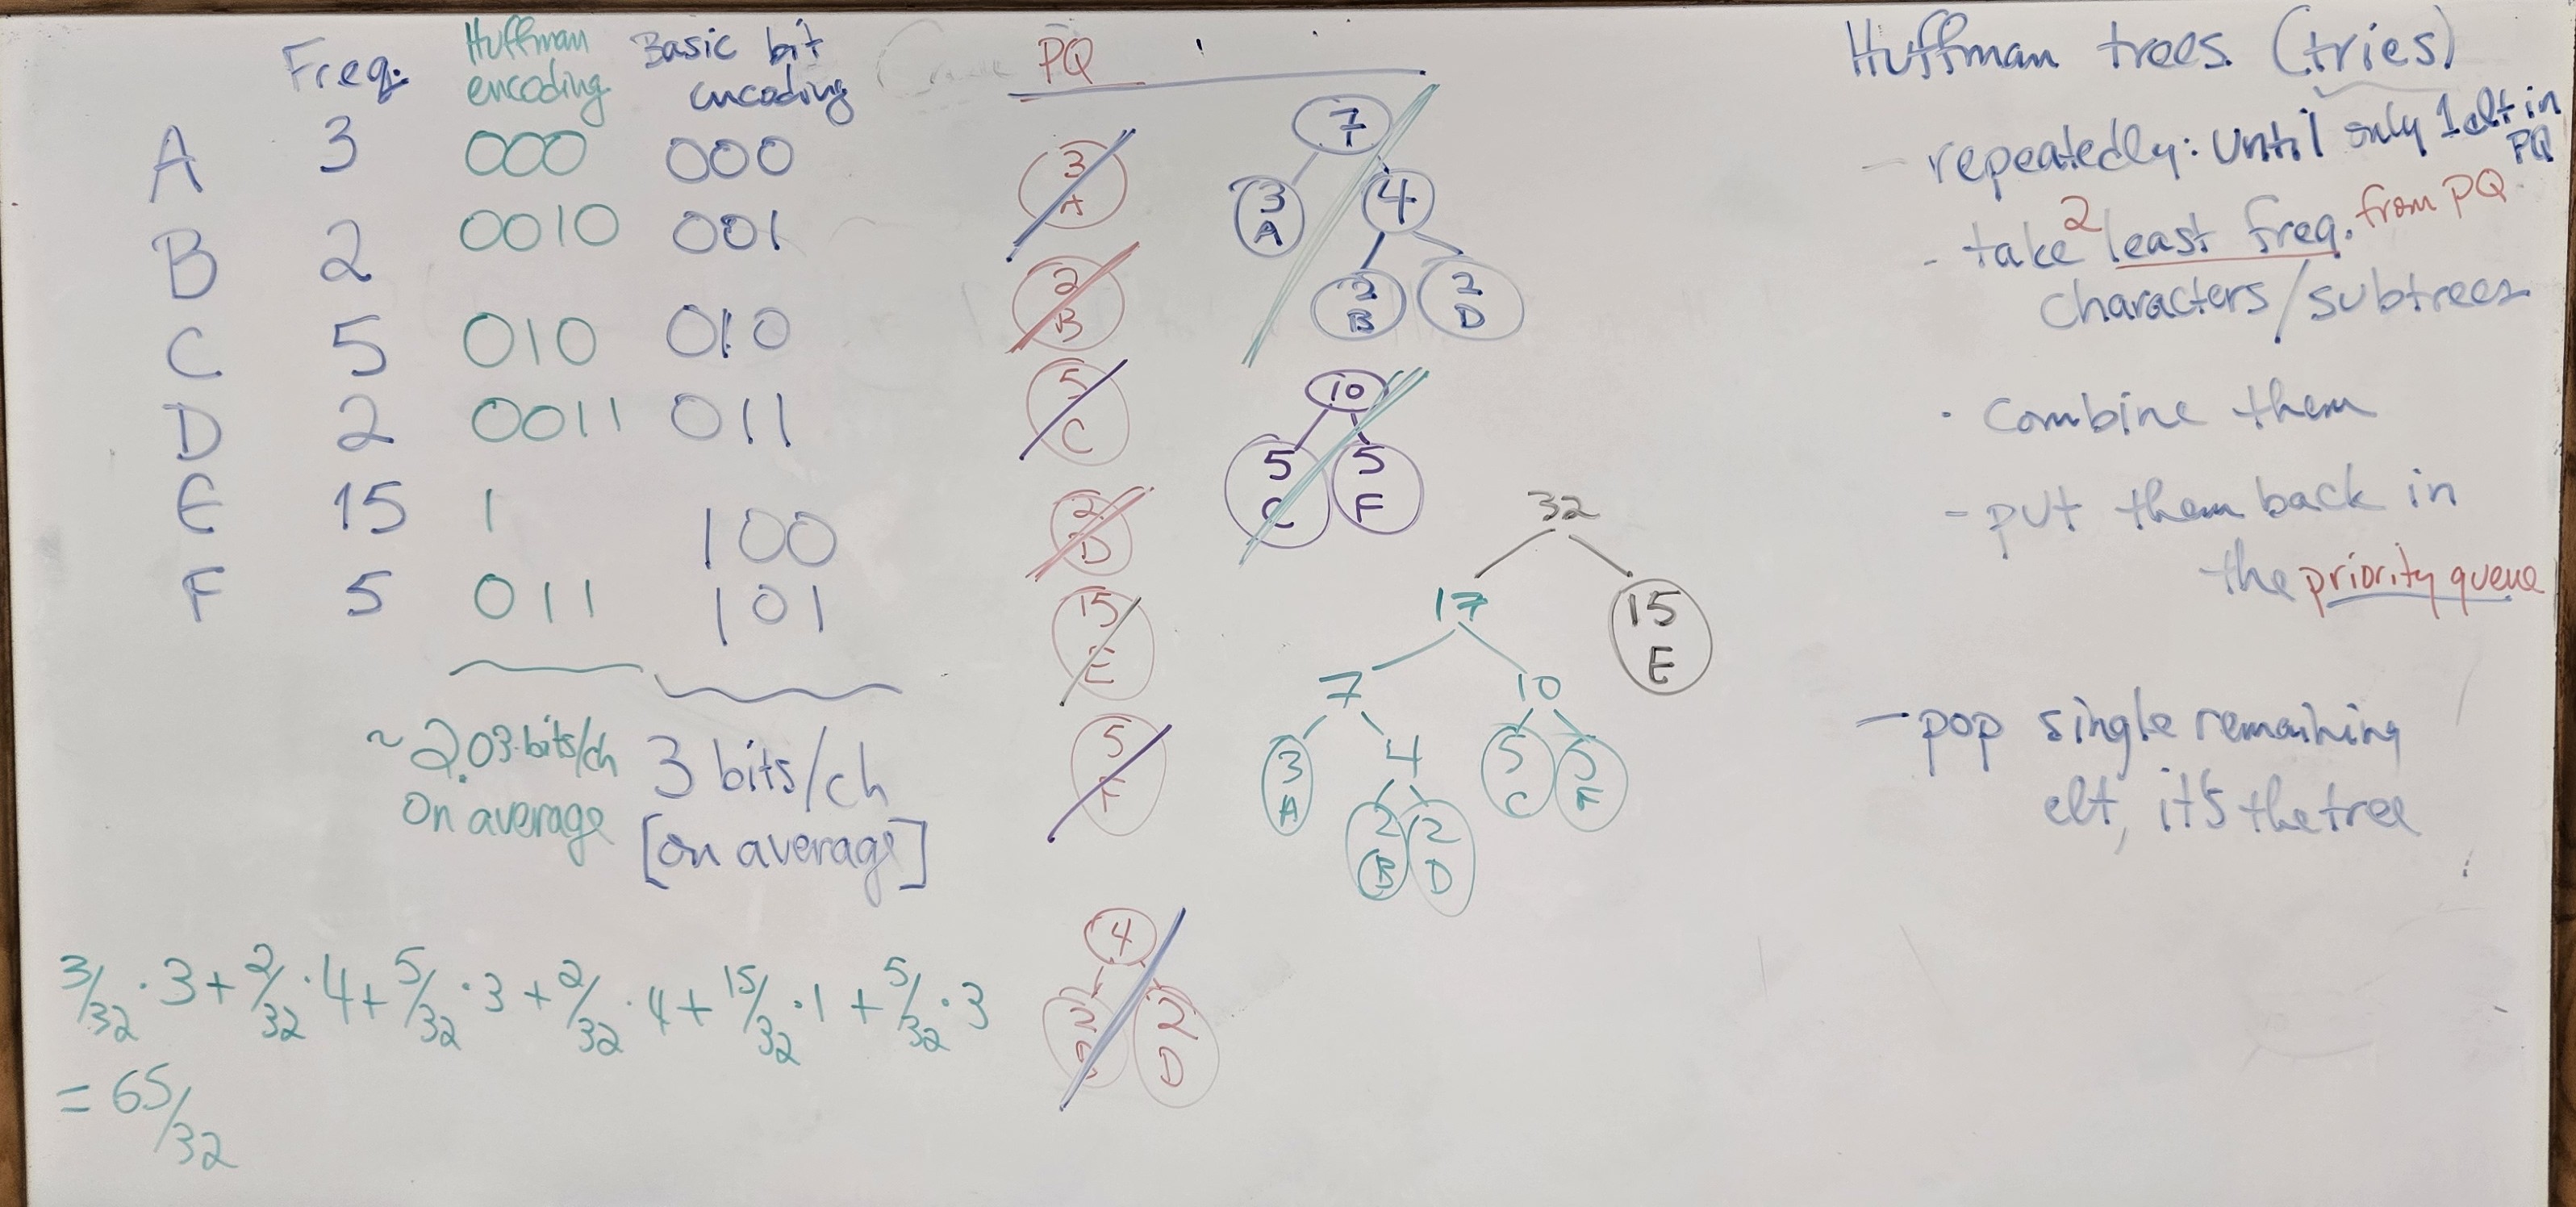 Freq. Huffman encoding Basic bit encoding
A 3 000 000
B 2 0010 001
C 5 010 010
D 2 0011 011
E 15 1 100
F 5 011 101
~2.03 bits/ch
on average
3 bits/ch
[on average]
3/32 · 3 + 2/32 · 4 + 5/32 · 3 + 2/32 · 4 + 15/32 · 1 + 5/32 · 3
= 65/32
PQ
3
A
2
B
5
C
2
D
15
E
5
F
4
2 2
D
7
3 4
A
2 2
B D
10
5 5
C F
32
17 15
E
7 10
3 4 5 5
A C F
2 2
B D
Huffman trees (tries)
- repeatedly: until only 1 elt in PQ
- take 2 least freq. from PQ
characters/subtrees
· combine them
- put them back in
the priority queue
- pop single remaining
elt, it's the tree